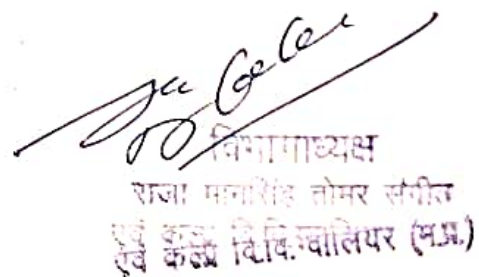 विभागाध्यक्ष
राजा मानसिंह तोमर संगीत
एवं कला वि.वि. ग्वालियर (म.प्र.)